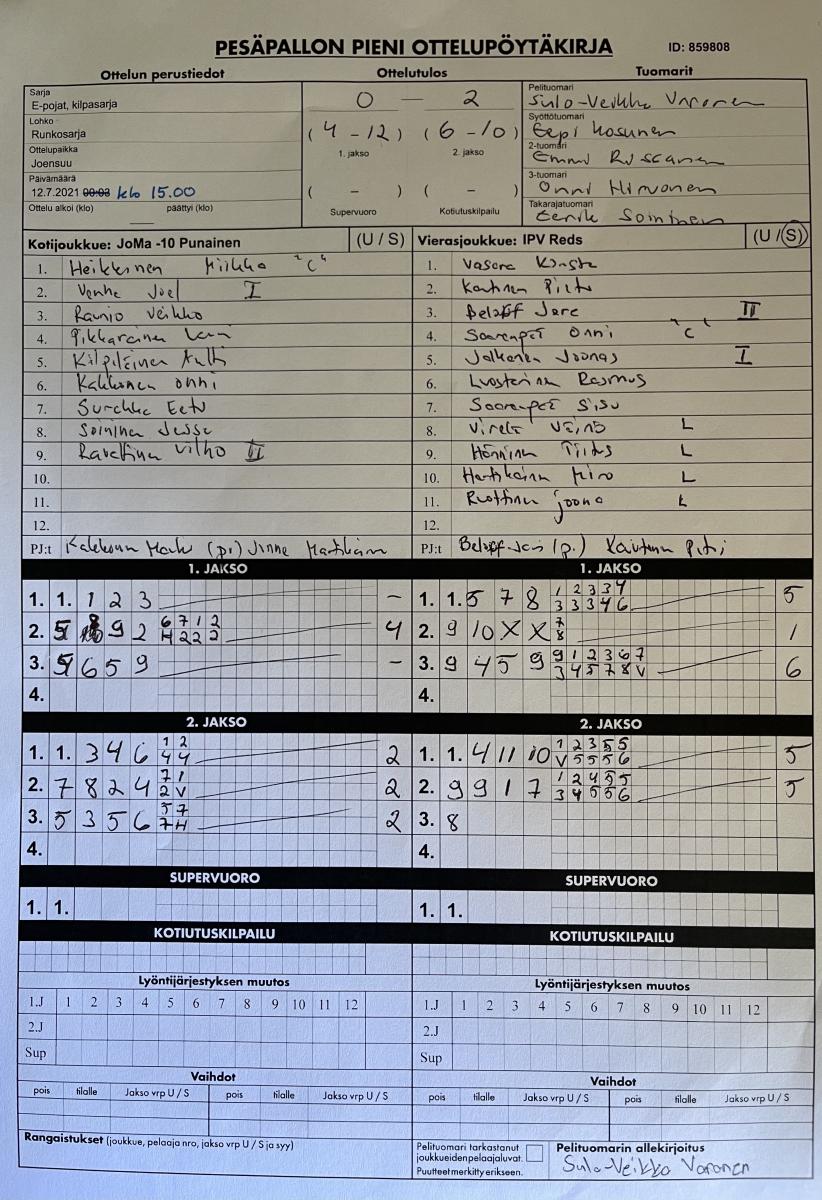 PESÄPALLON PIENI OTTELUPÖYTÄKIRJA ID: 859808
Ottelun perustiedot Ottelutulos Tuomarit
Sarja
E-pojat, kilpasarja
Lohko
Runkosarja
Ottelupaikka
Joensuu
Päivämäärä
12.7.2021 00:03 klo 15.00
Ottelu alkoi (klo) päättyi (klo)
0 — 2
(4 - 12) (6 - 10)
1. jakso 2. jakso
( - ) ( - )
Supervuoro Kotiutuskilpailu
Pelituomari
Sulo-Veikko Varonen
Syöttötuomari
Eepi Kosunen
2-tuomari
3-tuomari
Onni Hirvonen
Takarajatuomari
Eerik Soininen
Kotijoukkue: JoMa -10 Punainen (U / S)
1. Heikkinen Miikka "C"
2. Venhe Joel I
3. Raunio Veikko
4. Pikkarainen
5. Kilpiläinen Antti
6. Kakkonen Onni
7. Surakka Eetu
8. Soininen Jesse
9. Vilho II
10.
11.
12.
PJ:t
Vierasjoukkue: IPV Reds (U / S)
1. Vasara
2.
3. Beloff Jere II
4. Saarenpää Onni "C"
5. Jalkanen Joonas I
6. Rasmus
7. Saarenpää Sisu
8. Väinö L
9. Hänninen Tiitus L
10. Hartikainen Miro L
11. Ruottinen Joona L
12.
PJ:t Beloff
1. JAKSO
1. 1. 1 2 3 -
2. 5 9 2 6 7 1 2 4
H 2 2 2
3. 5 6 5 9 -
4.
1. JAKSO
1. 1. 5 7 8 1 2 3 3 4 5
3 3 3 4 6
2. 9 10 X X 7 1
8
3. 9 4 5 9 9 1 2 3 6 7 6
3 4 5 7 8 V
4.
2. JAKSO
1. 1. 3 4 6 1 2 2
4 4
2. 7 8 2 4 7 1 2
2 V
3. 5 3 5 6 5 7 2
7 H
4.
2. JAKSO
1. 1. 4 11 10 1 2 3 5 5 5
V 5 5 5 6
2. 9 9 1 7 1 2 4 5 5 5
3 4 5 5 6
3. 8
4.
SUPERVUORO SUPERVUORO
1. 1. 1. 1.
KOTIUTUSKILPAILU KOTIUTUSKILPAILU
Lyöntijärjestyksen muutos Lyöntijärjestyksen muutos
1.J 1 2 3 4 5 6 7 8 9 10 11 12 1.J 1 2 3 4 5 6 7 8 9 10 11 12
2.J 2.J
Sup Sup
Vaihdot Vaihdot
pois tilalle Jakso vrp U / S pois tilalle Jakso vrp U / S pois tilalle Jakso vrp U / S pois tilalle Jakso vrp U / S
Rangaistukset (joukkue, pelaaja nro, jakso vrp U / S ja syy)
Pelituomari tarkastanut
joukkueidenpelaajaluvat.
Puutteet merkitty erikseen.
Pelituomarin allekirjoitus
Sulo-Veikko Varonen